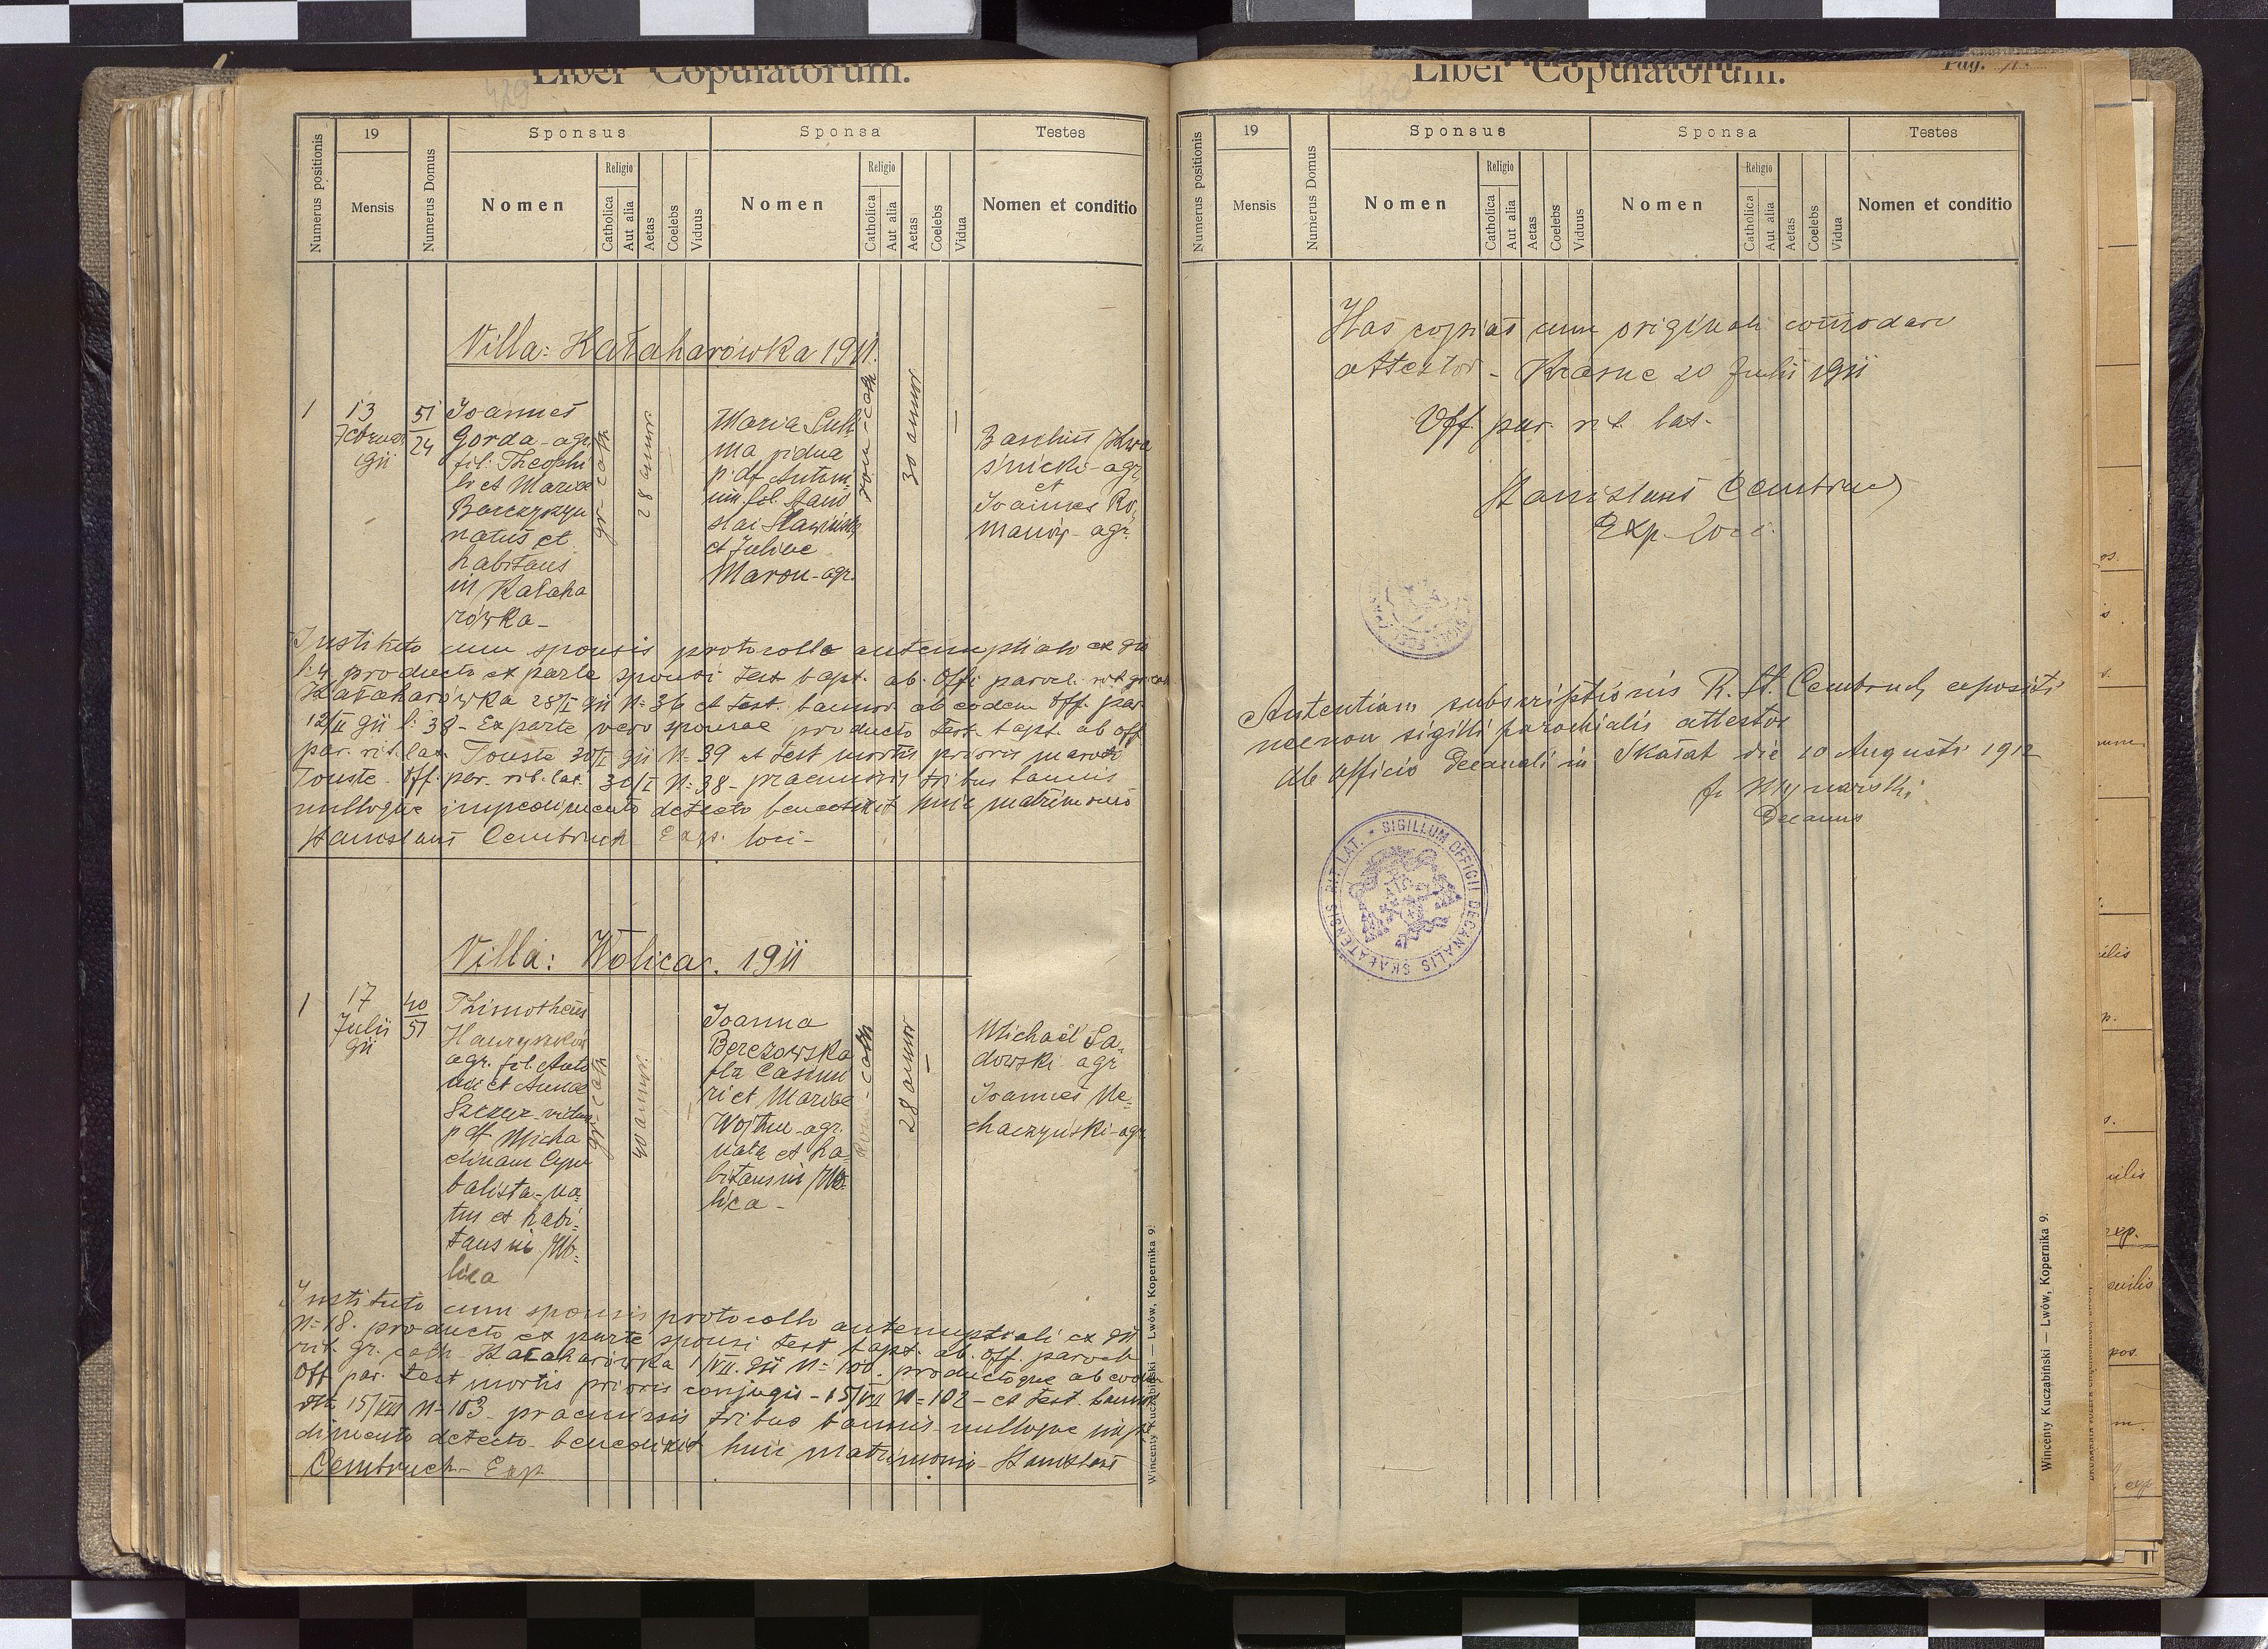 Liber Copulatorum.
429
Numerus positionis
19
Mensis
Numerus Domus
Sponsus
Nomen
Religio
Catholica
Aut alia
Aetas
Coelebs
Vidus
Sponsa
Nomen
Religio
Catholica
Aut alia
Aetas
Coelebs
Vidua
Testes
Nomen et conditio
Villa: Kałaharówka 1911.
1
13
Februar
911
51
24
Joannes
Gorda - agr.
fil. Theophi
li et Mariae
natus et
habitans
in Kałaha
rówka -
gr - cath
28 annor
Maria
ma vidua
p. df. Anton
ium fil. Stanis
slai
et Juliae
Maron - agr.
rom - cath
30 annor
Basilius Kwa
śnicki - agr
et
Joannes Ro,
manów - agr.
Instituto cum sponsis protocollo antenuptiali ex 911
l: 4 producto ex parte sponsi test bapt. ab. Off. paroch. rit gr cath
Kałaharówka 28/I 911 N= 36 et test. bannor ab eodem Off. par
12/II 911 l: 38 - Ex parte vero sponsae producto test. bapt. ab off
par. rit. lat Touste 30/I 911 N= 39 et test mortis prioris mariti
Touste Off. par. rit. lat. 30/I N= 38 - praemissis tribus bannis
nulloque impedimento detecto benedixit huic matrimonio
Stanislaus Cembruch Exp. loci -
Villa: Wolica. 1911
1
17
Julii
911
40
51
Thimotheus
agr. fil. Anto
nii et Annae
Szczur - vidus
p df Micha
elinam Cym
balista - na,
tus et habi=
tans in Wo=
lica
gr - cath
40 annor.
Joanna
Berezowska
fla Casimi
ri et Mariae
Wojtiu - agr.
nata et ha=
bitans in Wo=
lica -
Rom - cath
28 annor
Michaël Sa,
dowski agr
Joannes Ne=
chaczyński - agr
Instituto cum sponsis protocollo antenuptiali ex 911
N= 18. producto ex parte sponsi test bapt. ab. Off. paroch
rit. gr. cath Kałaharówka 1/VII. 911 N= 100. productoque ab eodem
Off par. test mortis prioris conjugis - 15/VII N= 102 - et test. bannor
15/VII N= 103 praemissis tribus bannis nulloque impe
dimento detecto - benedixit huic matrimonio - Stanislaus
Cembruch - Exp
Wincenty Kuczabiński — Lwów, Kopernika 9.
Liber Copulatorum.
430
Pag.
Numerus positionis
19
Mensis
Numerus Domus
Sponsus
Nomen
Religio
Catholica
Aut alia
Aetas
Coelebs
Vidus
Sponsa
Nomen
Religio
Catholica
Aut alia
Aetas
Coelebs
Vidua
Testes
Nomen et conditio
Has copias cum originali
attestor - Krasne 20 Julii 1911
Off par. rit. lat.
Stanislaus Cembruch
Exp. loci.
Autentiam subscriptionis R. St. Cembruch expositi
necnon sigilli parochialis attestor
Ab officio Decanali in Skałat die 10 Augusti 1912
Decanus
SIGILLUM OFFICII DECANALIS SKAŁATENSIS RIT. LAT.
Wincenty Kuczabiński — Lwów, Kopernika 9.